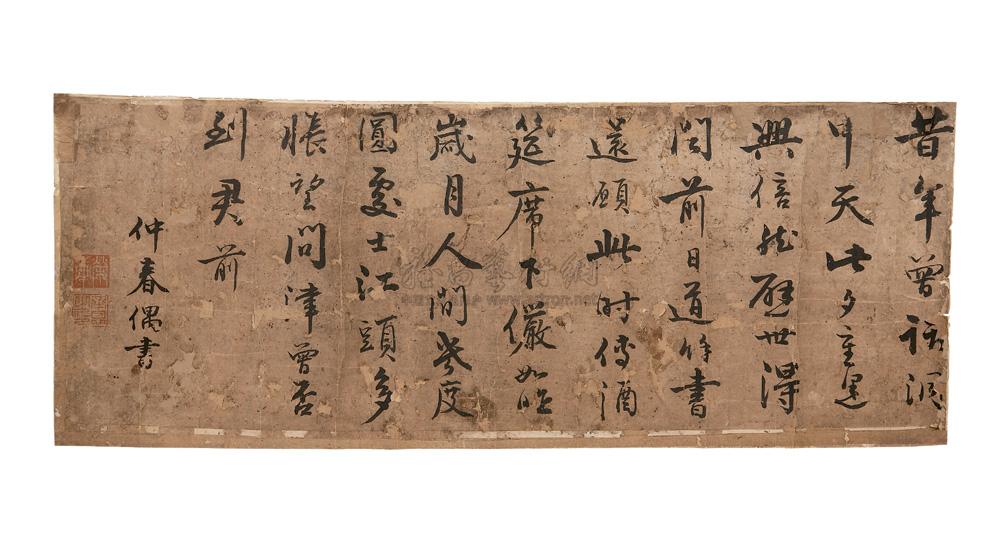 昔年曾話洞
中天此夕重
興信然世得
聞前日道書
還願此時傳酒
筵席下儼如
歲月人間幾度
圓處士江頭多
悵望問津曾否
到君前
仲春偶書